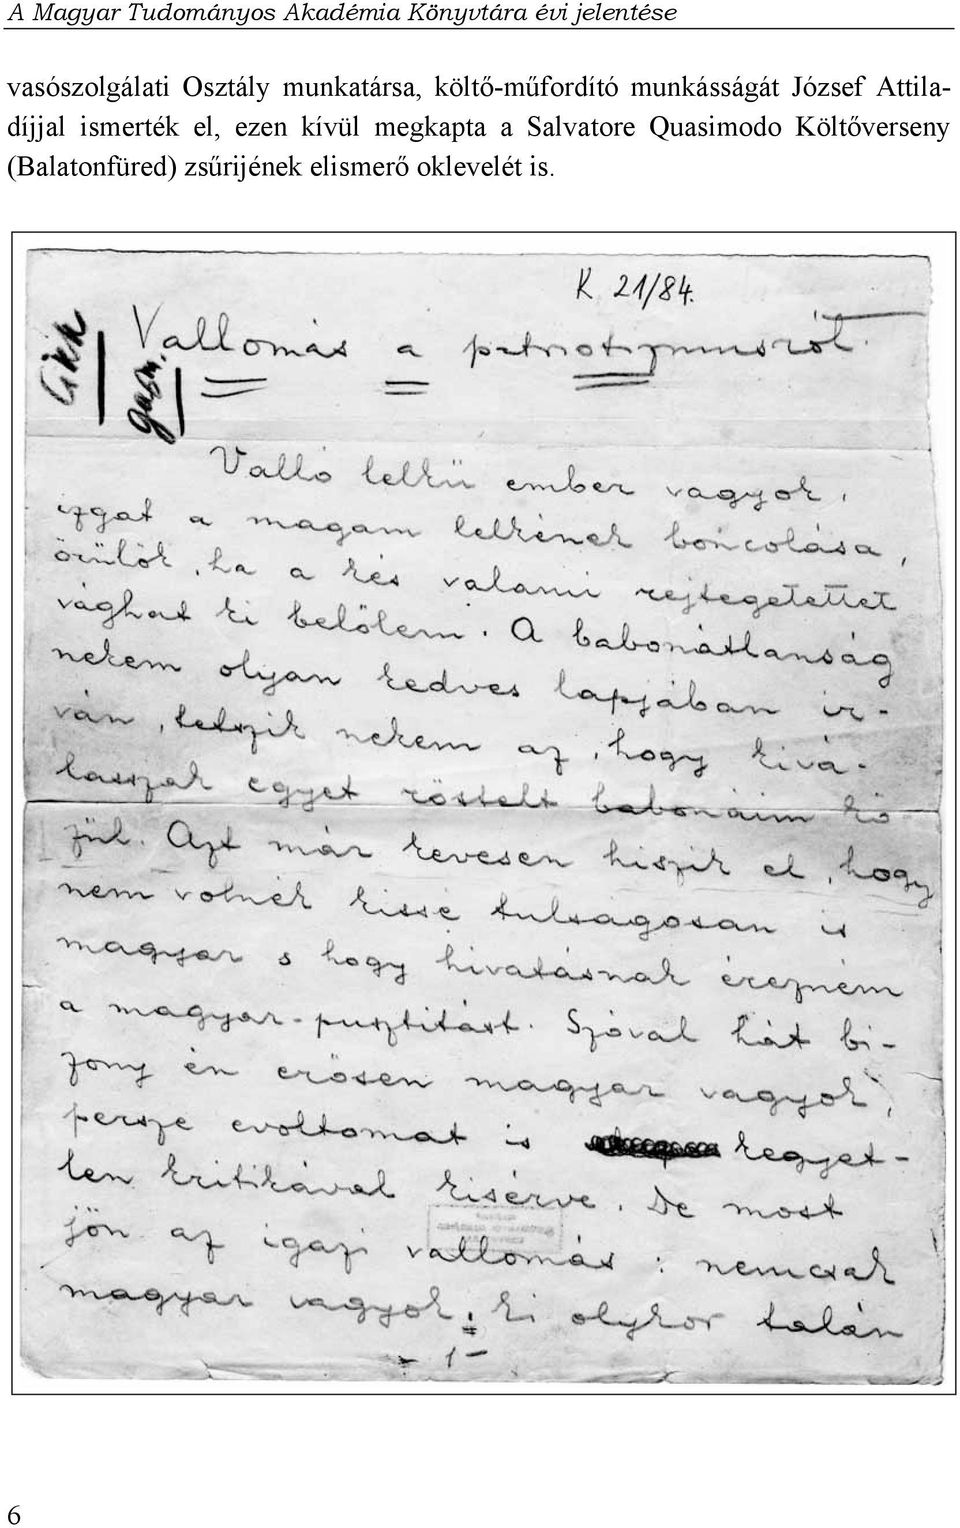 A Magyar Tudományos Akadémia Könyvtára évi jelentése
vasószolgálati Osztály munkatársa, költő-műfordító munkásságát József Attila-
díjjal ismerték el, ezen kívül megkapta a Salvatore Quasimodo Költőverseny
(Balatonfüred) zsűrijének elismerő oklevelét is.
K 21/84.
Cikk
garm.
Vallomás a patriotizmusról.
Valló lelkü ember vagyok,
izgat a magam lelkének boncolása,
örülök, ha a kés valami rejtegetettet
vághat ki belőlem. A babonátlanság
nekem olyan kedves lapjában ir-
ván, tetszik nekem az, hogy kivá-
lasszak egyet röstelt babonáim kö
zül. Azt már kevesen hiszik el, hogy
nem volnék kissé tulságosan is
magyar s hogy hivatásnak érezném
a magyar-pusztitást. Szóval hát bi-
zony én erősen magyar vagyok,
persze evoltomat is kegyet-
len kritikával kisérve. De most
jön az igazi vallomás: nemcsak
magyar vagyok, ki olykor talán
- 1 -
6